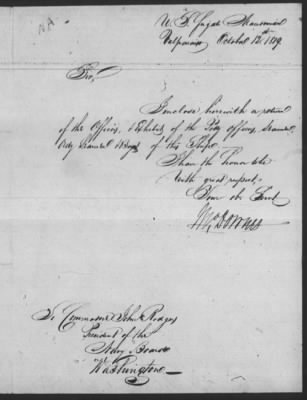 NA
U. S. Frigate Macedonian
Valparaiso October 12th 1819
Sir,
I enclose herewith a return
of the Officers, & of the Petty Officers, Seamen
Ordy Seamen & Boys of this Ship.
I have the honor to be
With great respect,
Your ob. Servt
Jno Downes
To Commodore John Rodgers
President of the
Navy Board
Washington